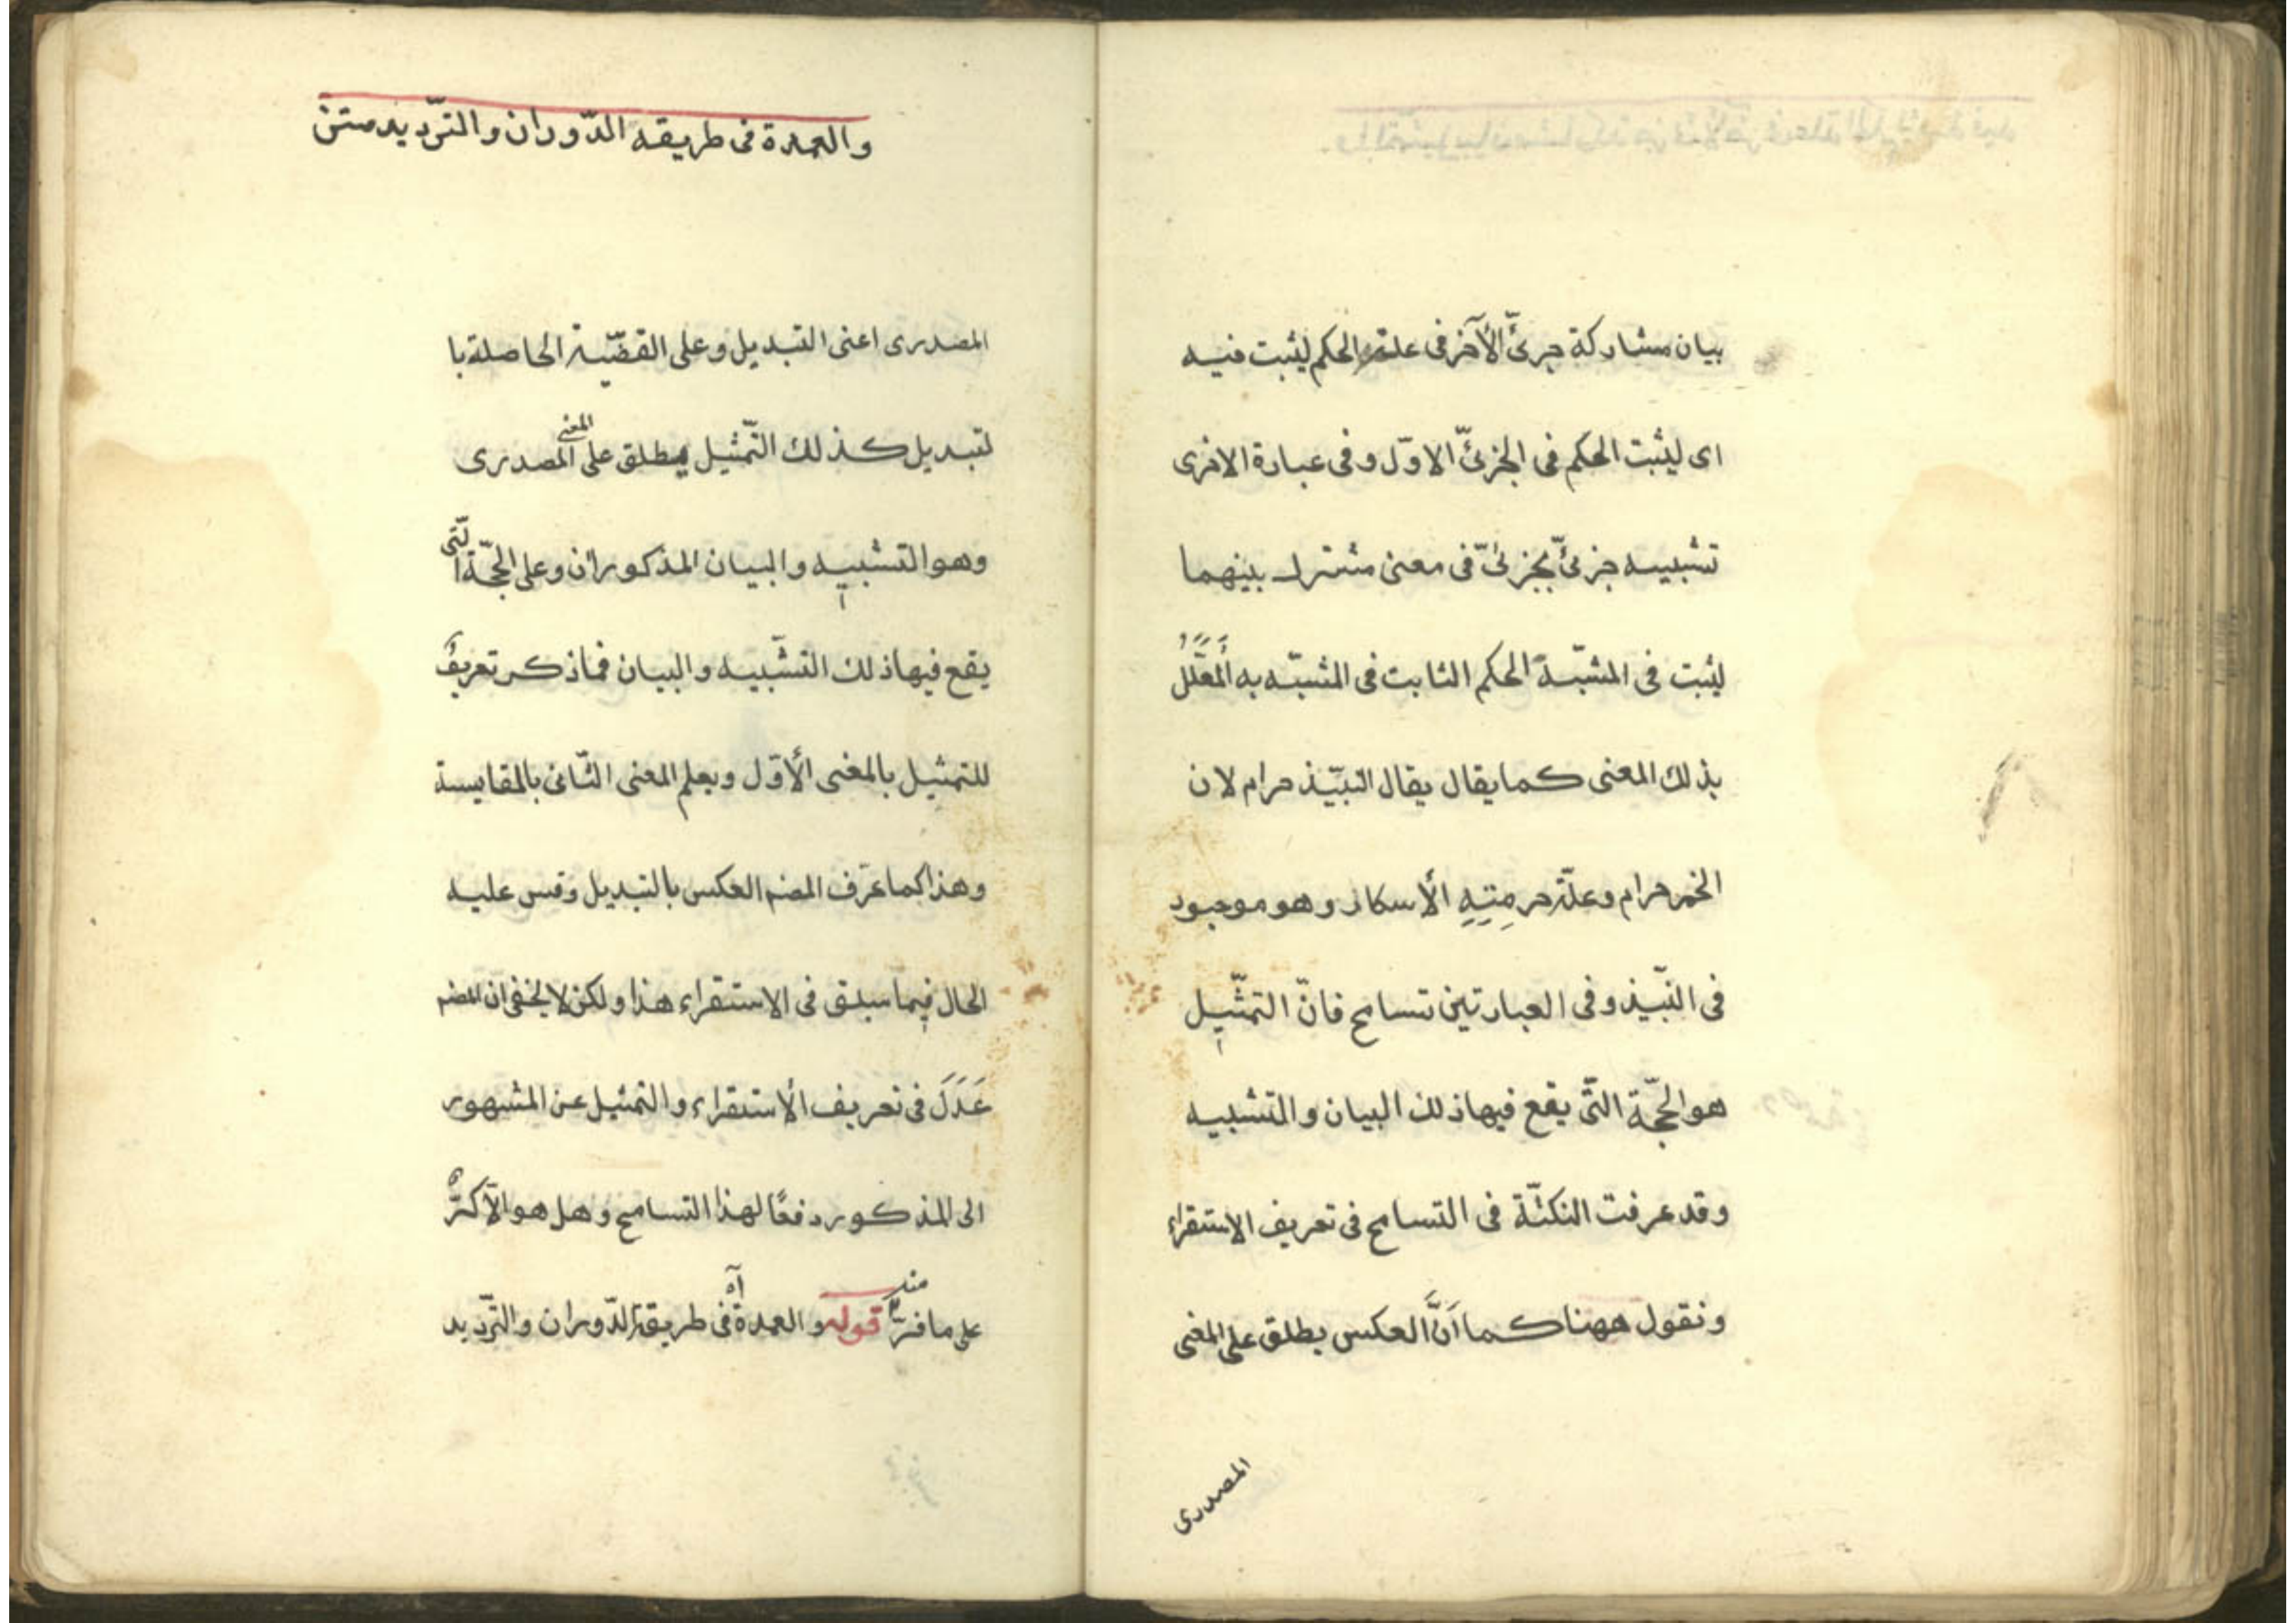 بيان مشاركة جزئىّ الآخر فى علة الحكم ليثبت فيه
اى ليثبت الحكم فى الجزئىّ الاوّل وفى عبارة الاخرى
تشبيه جزئىّ بجزئىّ فى معنى مشترك بينهما
ليثبت فى المشبّه الحكم الثابت فى المشبّه به المُعَلَّلُ
بذلك المعنى كما يقال يقال النبيّذ حرام لان
الخمر حرام وعلّة حرمِتِهِ الأسكار وهو موجود
فى النبّيذ وفى العبارتين تسامح فانّ التمثّيل
هو الحجّة التّى يقع فيها ذلك البيان والتشبيه
وقد عرفت النكتّة فى التسامح فى تعريف الاستقراء
ونقول ههنا كما اَنَّ العكس يطلق على المعنى
المصدرى
والعمدة فى طريقه الدّوران والترّديد متن
المصدرى اعنى التبديل وعلى القضّية الحاصلة با
لتبديل كذلك التّمثيل يطلق على المعنى المصدرى
وهو التشبيه والبيان المذكوران وعلى الحجّة الّتى
يقع فيها ذلك التشّبيه والبيان فما ذكر تعريفٌ
للتمثيل بالمعنى الأوّل ويعلم المعنى الثّانى بالمقايسة
وهذا كما عرّف المضہ العكس بالتبديل وقس عليه
الحال فيما سبق فى الاستقراء هذا ولكن لا يخفى ان المضہ
عَدَلَ فى تعريف الأستقراء والتمثيل عن المشهور
الى المذكور دفعًا لهذا التسامح وهل هو الّا كرٌّ
على ما فرّ منه قوله والعمدة آه فى طريقة الدّوران والترّديد